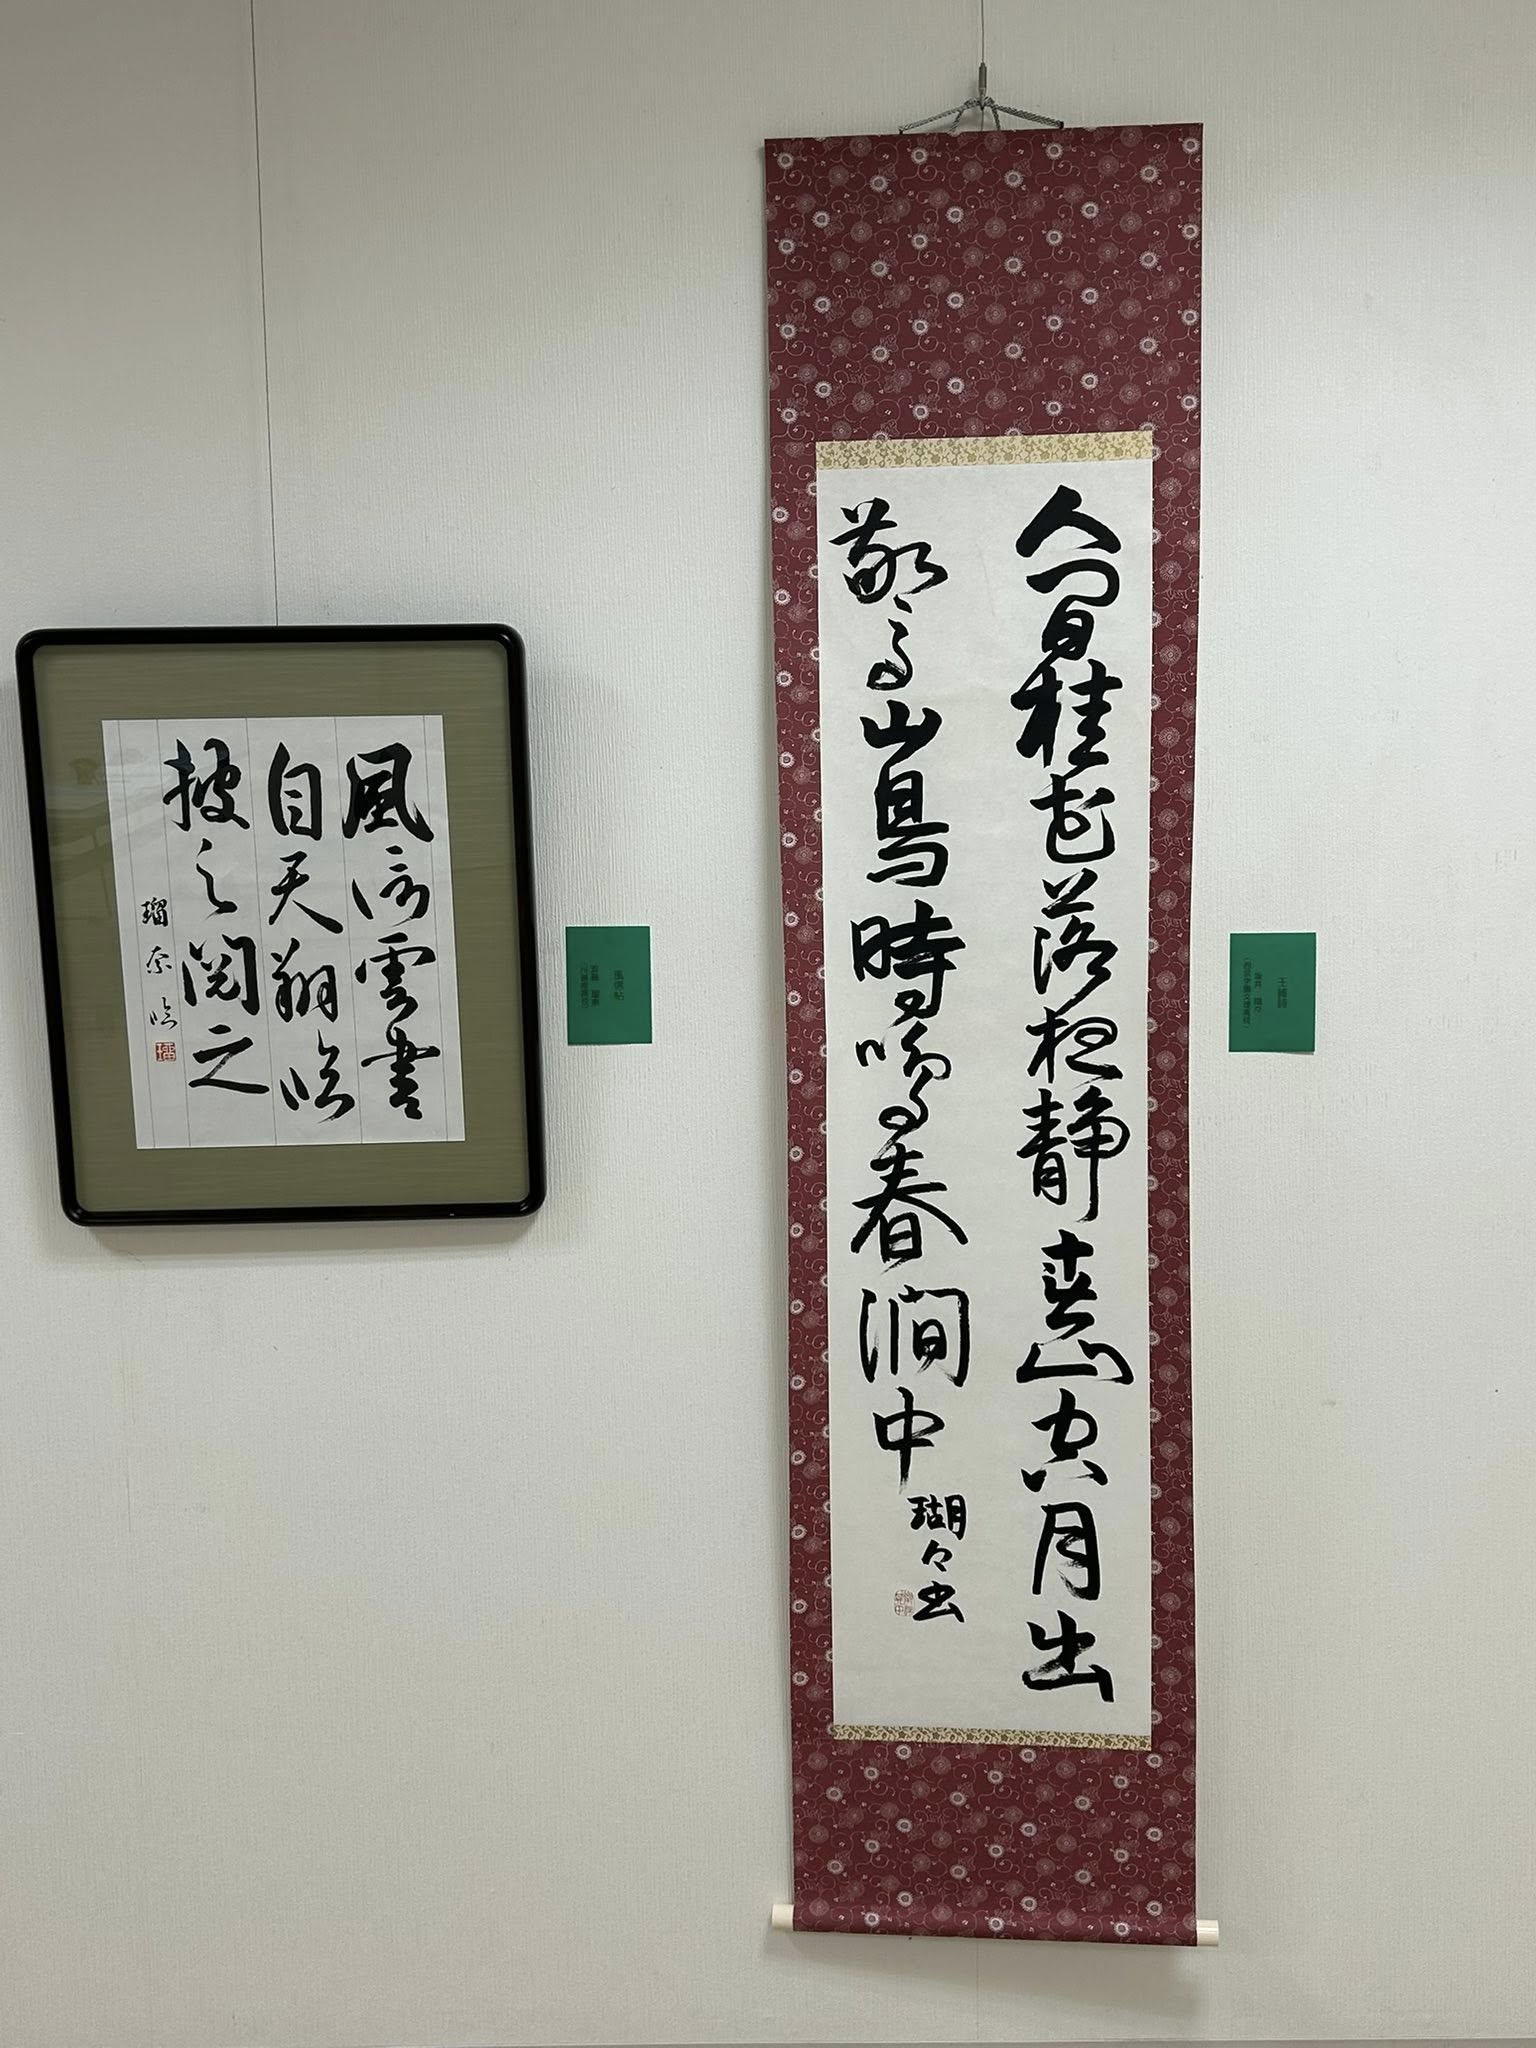 王維詩
人間桂花落夜静春山空月出
驚山鳥時鳴春澗中
瑚々書
風信帖
風信雲書
自天翔臨
披之閲之
瑠奈臨